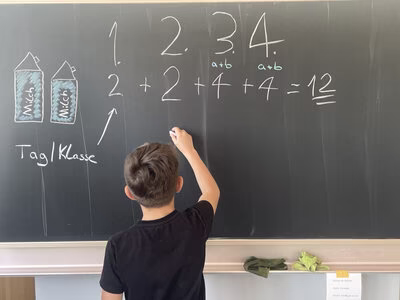 1. 2. 3. 4.
a+b a+b
2 + 2 + 4 + 4 = 12
Milch Milch
Tag/Klasse